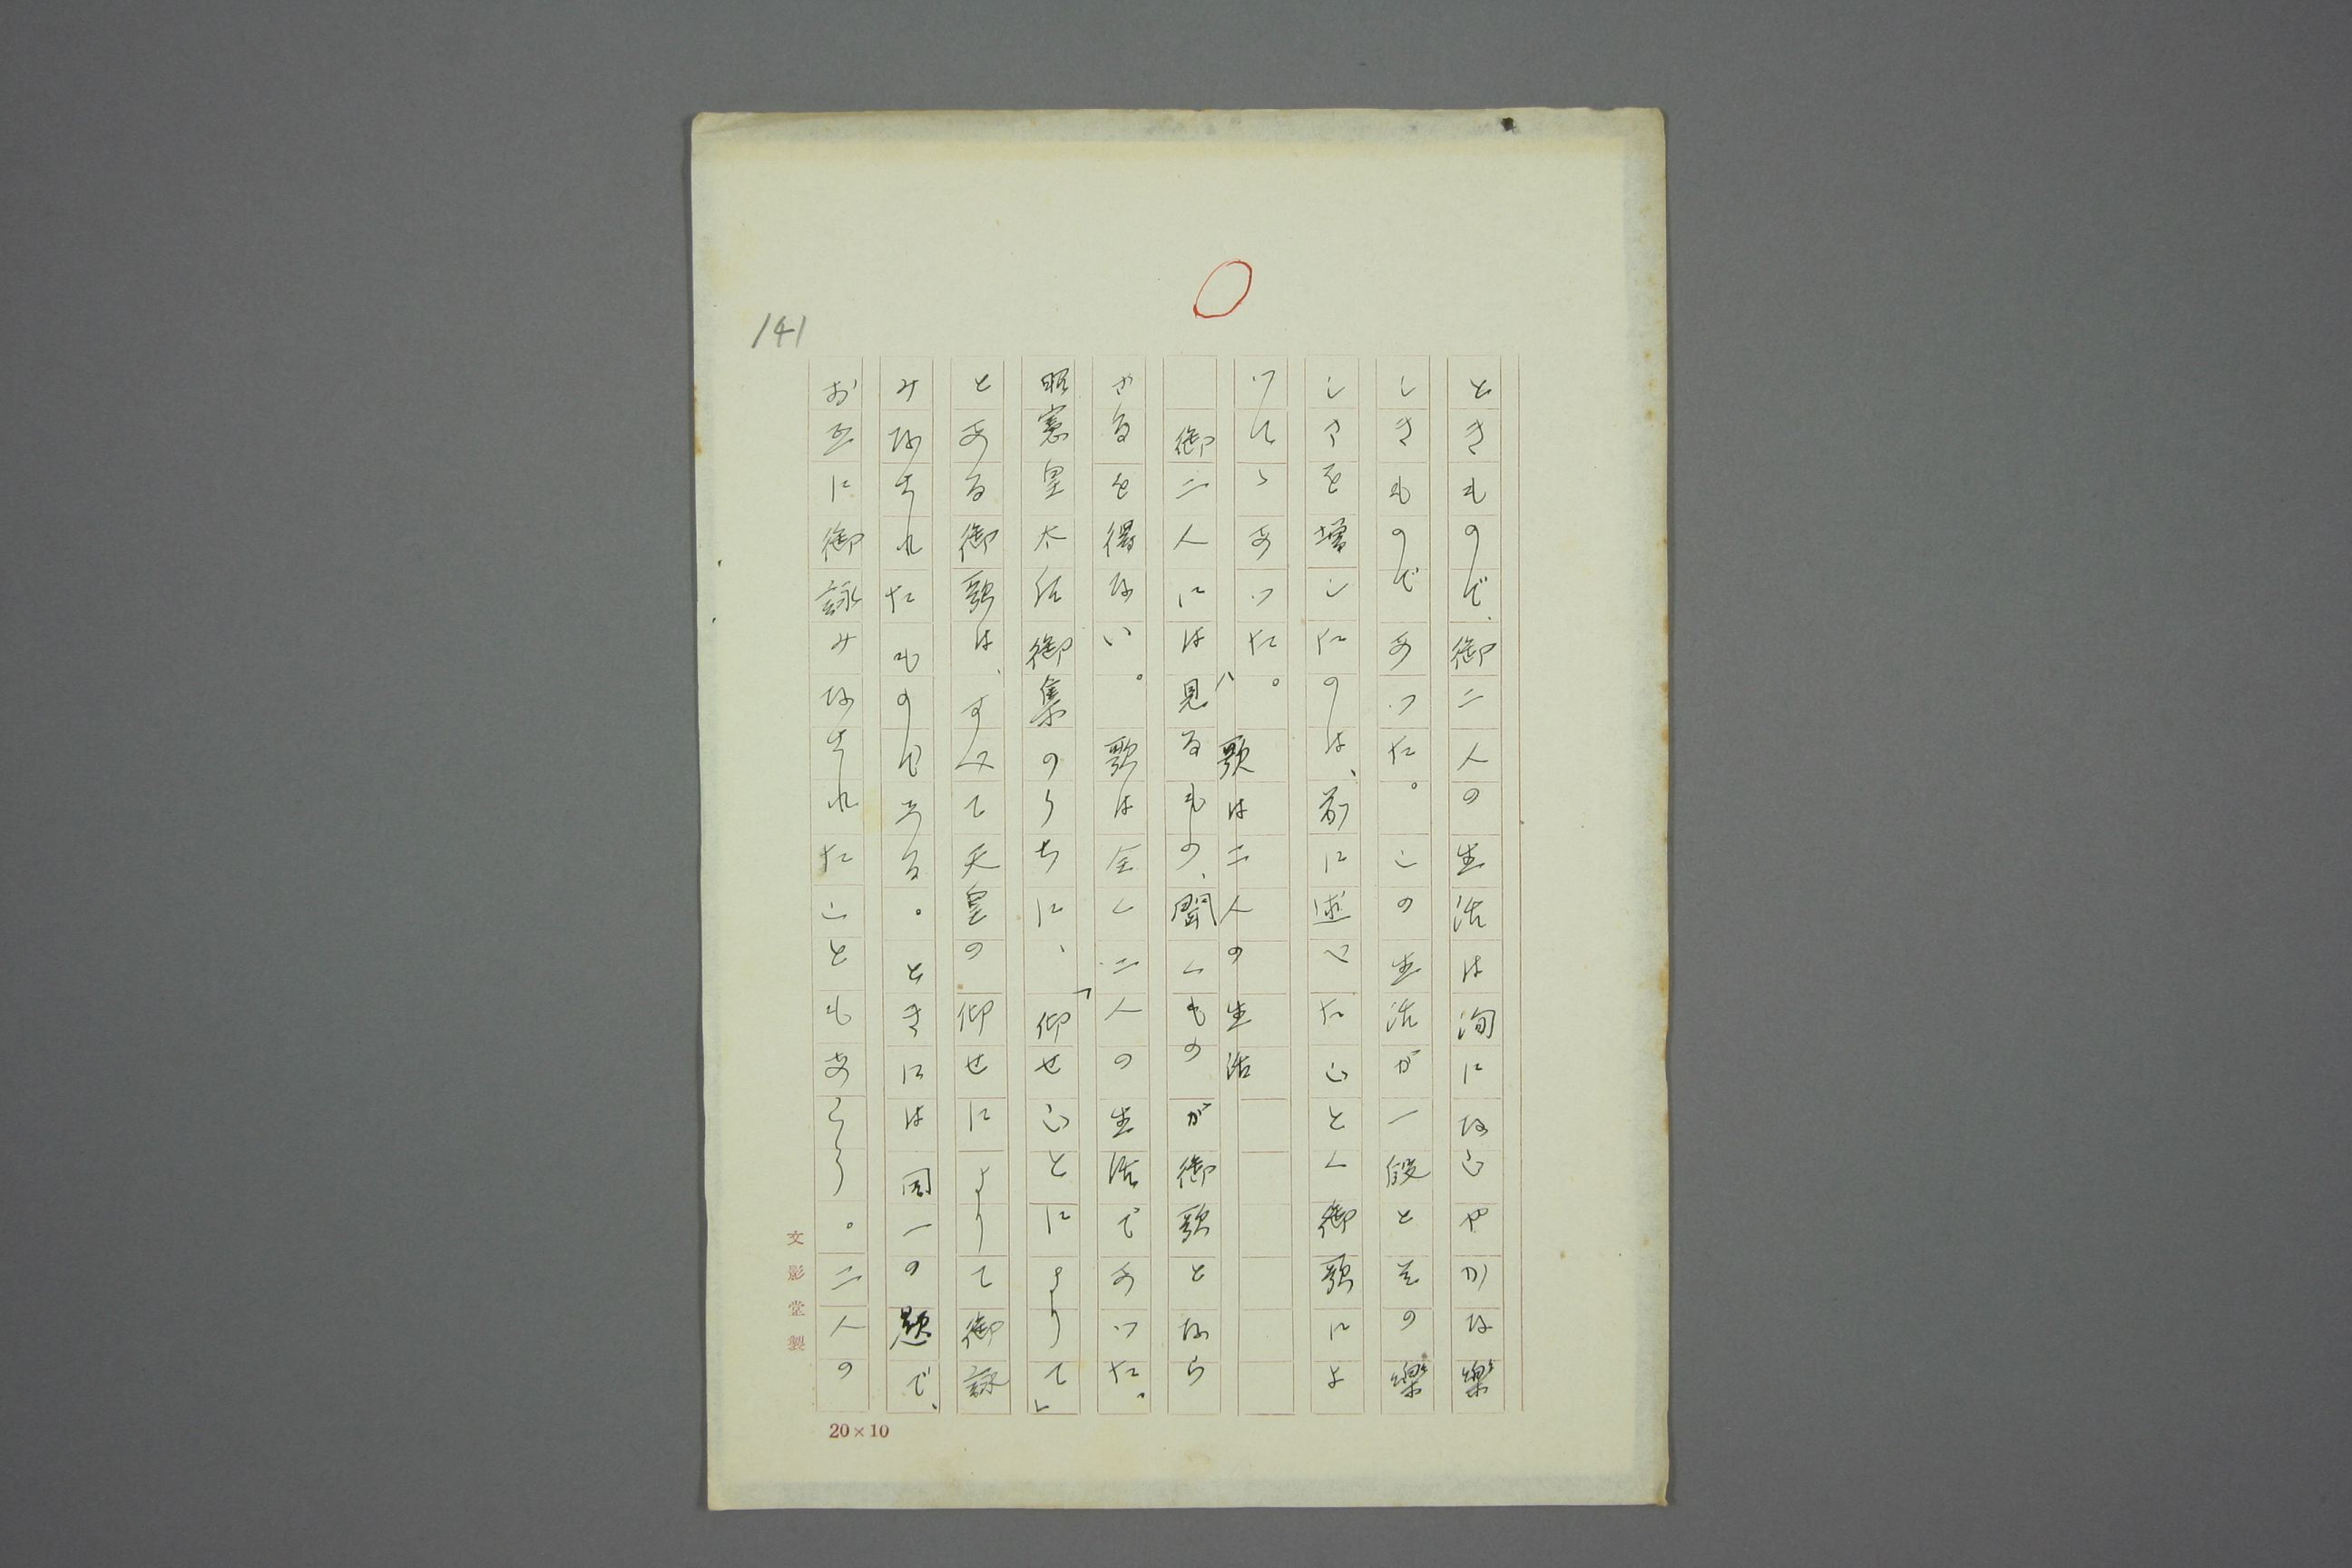 141
ときもので、御二人の生活は洵になごやかな樂
しきものであつた。この生活が一段とその樂
しさを増したのは、前に述べたごとく御歌によ
つてゝあつた。
歌は二人の生活
御二人には見るもの、聞くものが御歌となら
ざるを得ない。歌は全く二人の生活であつた。
昭憲皇太后御集のうちに、「仰せごとによりて」
とある御歌は、すべて天皇の仰せによりて御詠
みなされたものである。ときには同一の題で、
お互に御詠みなされたこともあらう。二人の
文影堂製
20×10